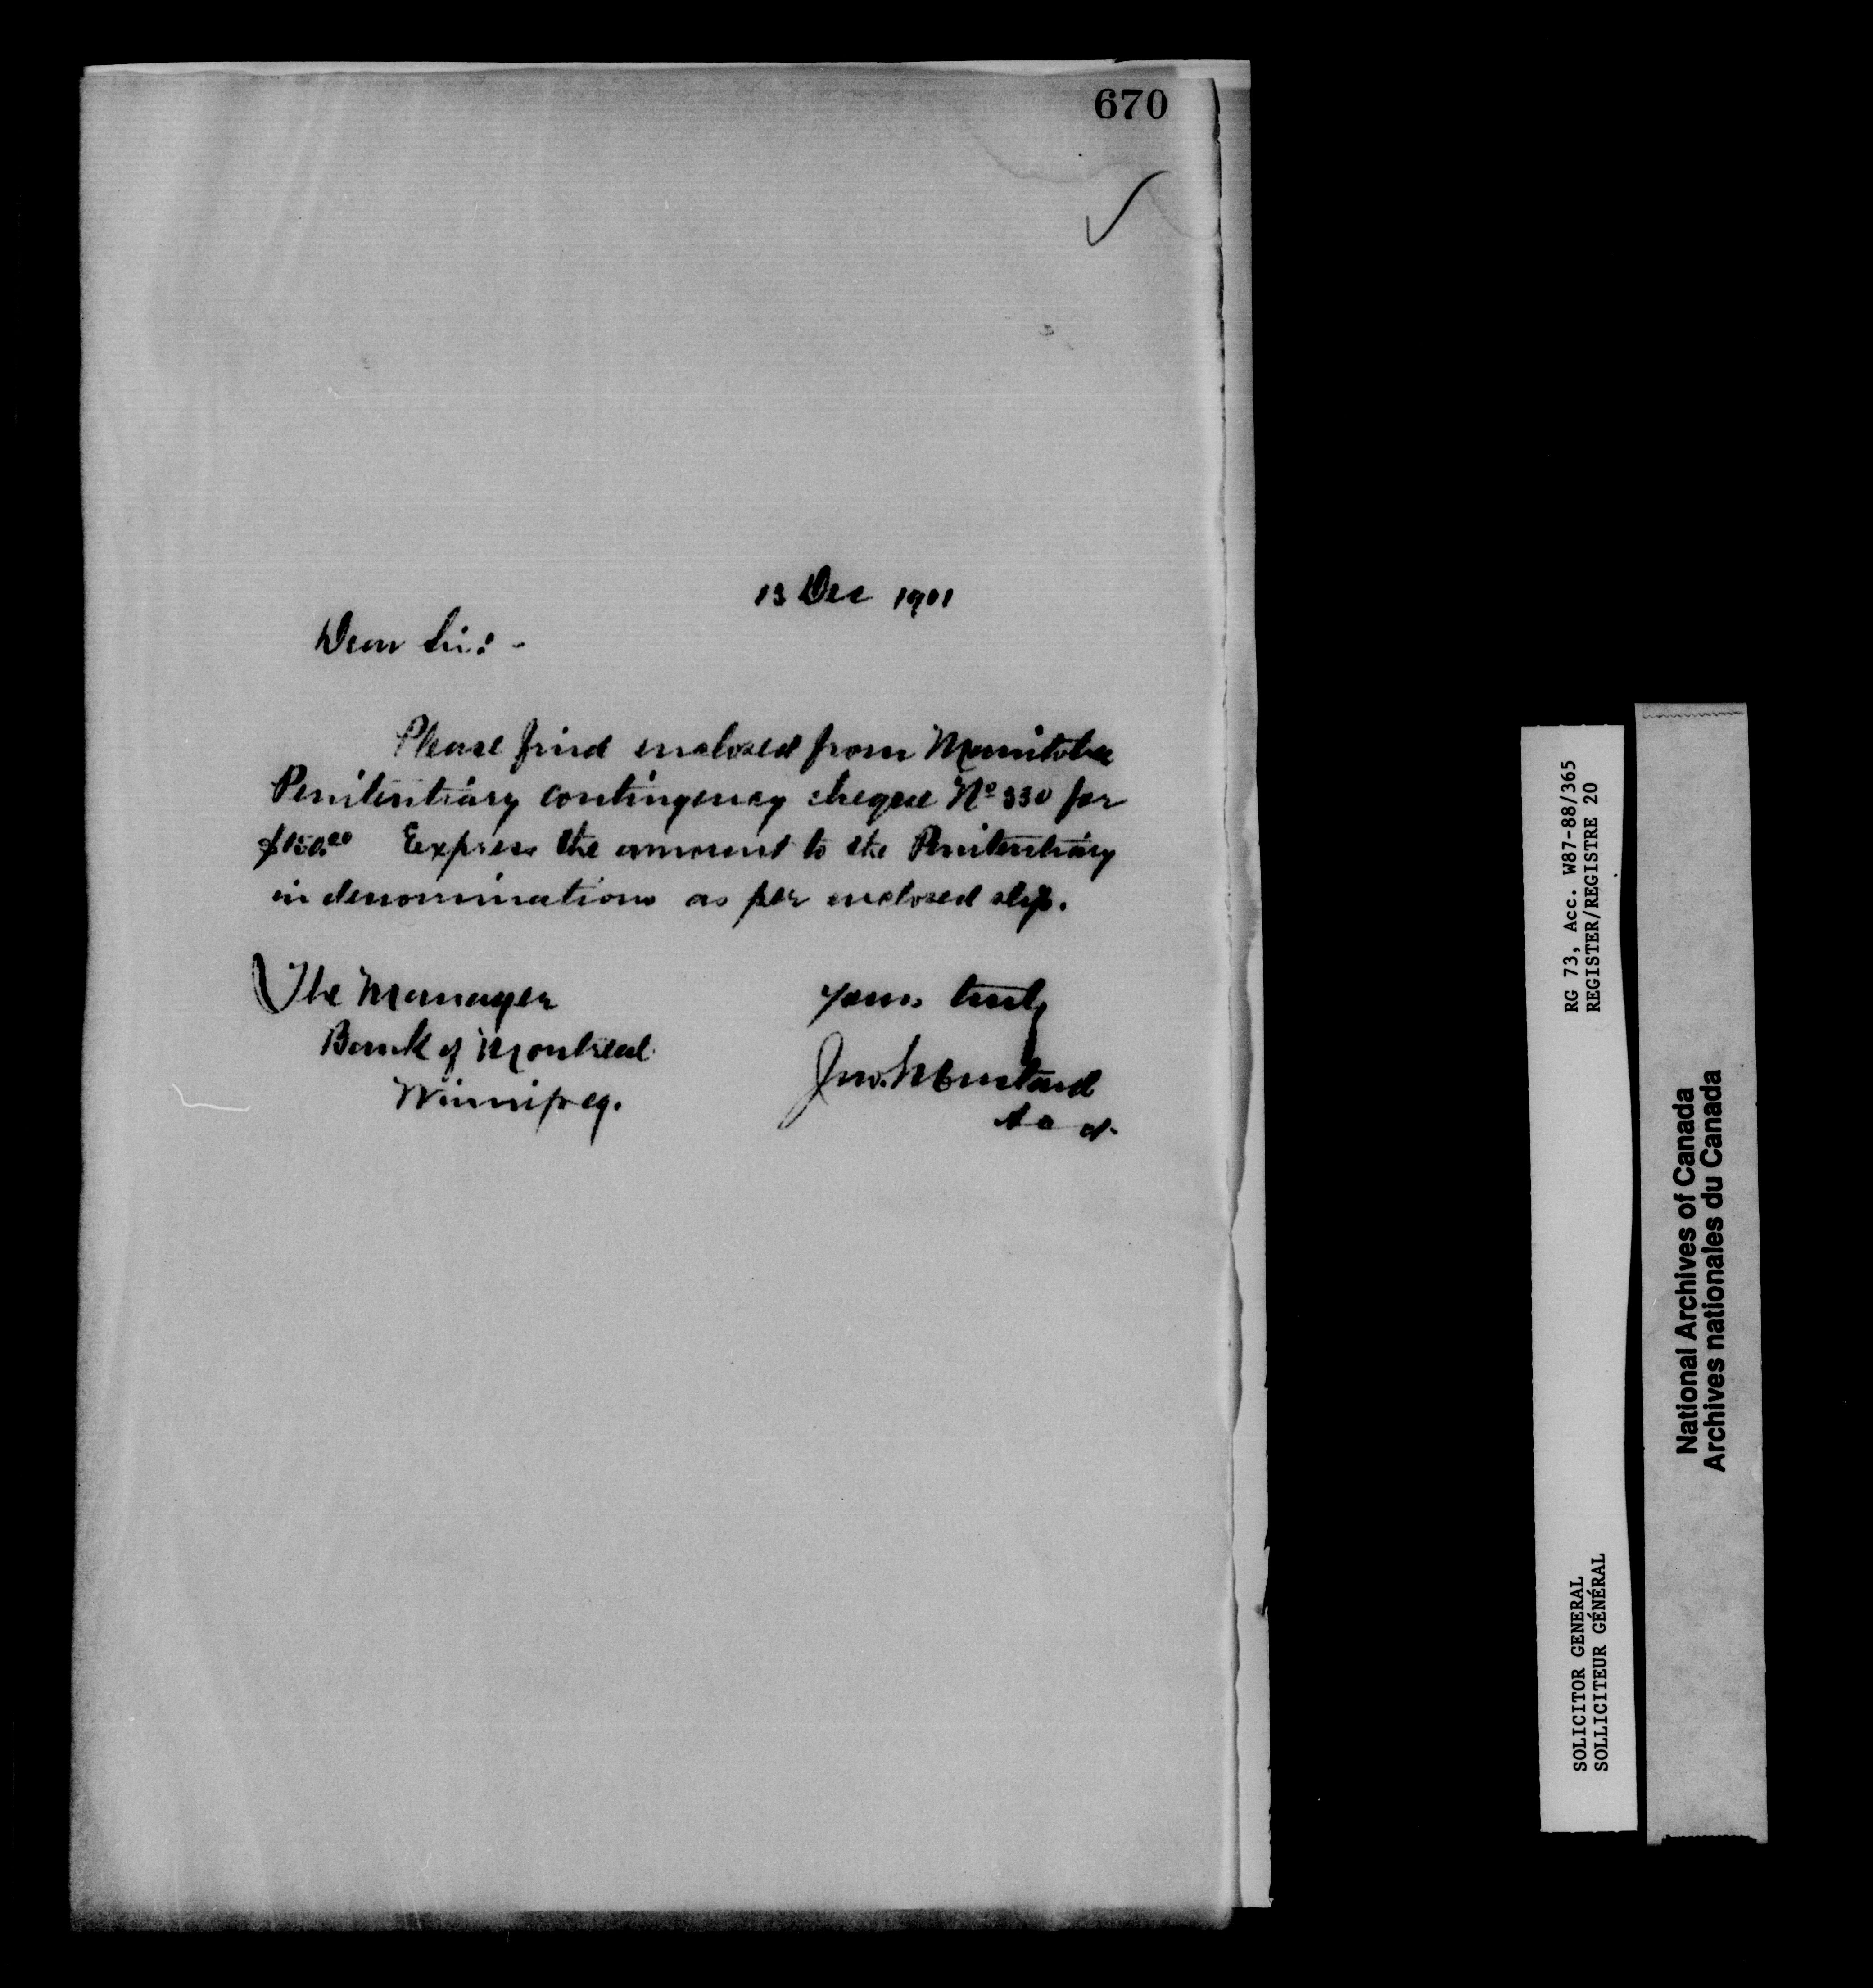 670
13 Dec 1901
Dear Sir:-
Please find enclosed from Manitoba
Penitentiary contingency cheque No 330 for
$150.00 Express the amount to the Penitentiary
in denominations as per enclosed slip.
The Manager
Bank of Montreal
Winnipeg.
Yours truly
Jno. Mustard
RG 73, Acc. W87-88/365
REGISTER/REGISTRE 20
SOLICITOR GENERAL
SOLLICITEUR GÉNÉRAL
National Archives of Canada
Archives nationales du Canada